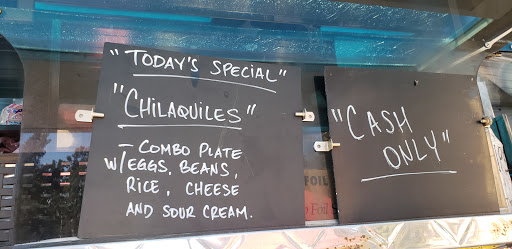 "TODAY'S SPECIAL"
"CHILAQUILES"
- COMBO PLATE
W/EGGS, BEANS,
RICE, CHEESE
AND SOUR CREAM.
"CASH
ONLY"
FOIL
Foil